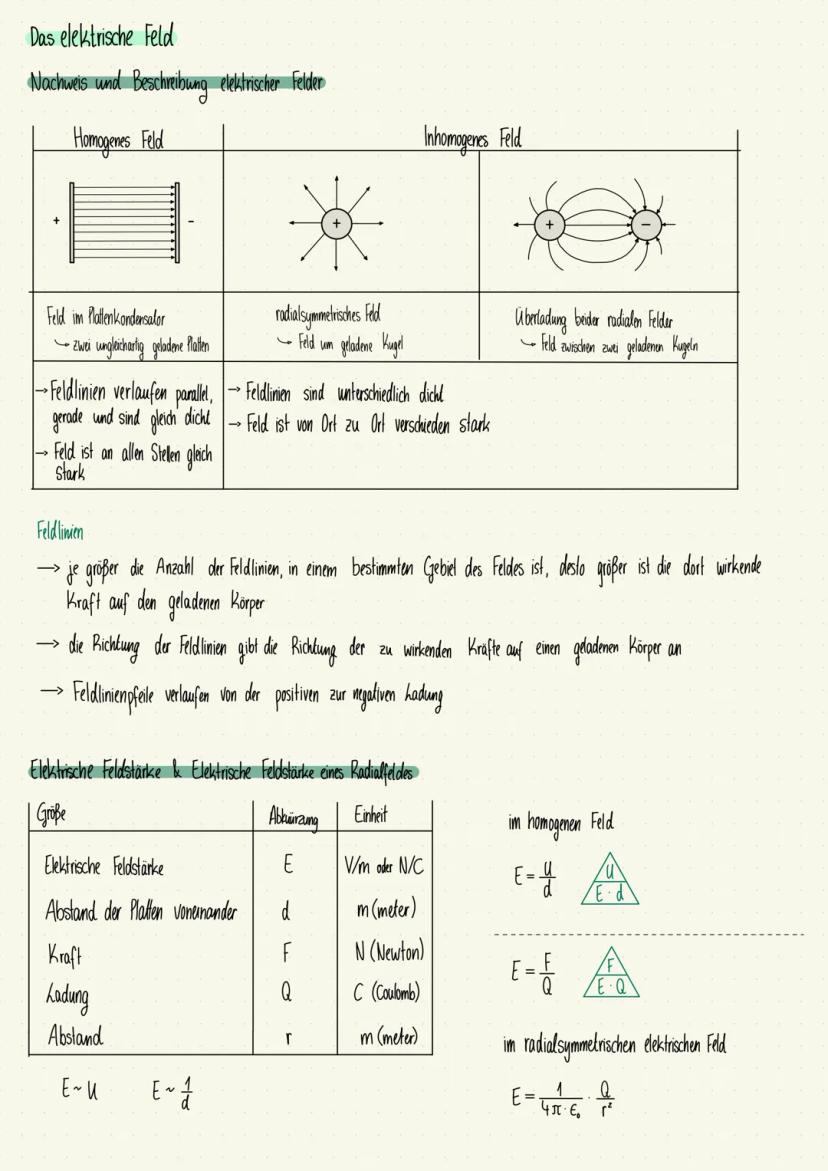 Das elektrische Feld
Nachweis und Beschreibung elektrischer Felder
Homogenes Feld
Inhomogenes Feld
+
-
+
+
-
Feld im Plattenkondensator
↳ zwei ungleichartig geladene Platten
radialsymmetrisches Feld
↳ Feld um geladene Kugel
Überladung beider radialen Felder
↳ Feld zwischen zwei geladenen Kugeln
→ Feldlinien verlaufen parallel,
gerade und sind gleich dicht
→ Feld ist an allen Stellen gleich
stark
→ Feldlinien sind unterschiedlich dicht
→ Feld ist von Ort zu Ort verschieden stark
Feldlinien
→ je größer die Anzahl der Feldlinien, in einem bestimmten Gebiet des Feldes ist, desto größer ist die dort wirkende
Kraft auf den geladenen Körper
→ die Richtung der Feldlinien gibt die Richtung der zu wirkenden Kräfte auf einen geladenen Körper an
→ Feldlinienpfeile verlaufen von der positiven zur negativen Ladung
Elektrische Feldstärke & Elektrische Feldstärke eines Radialfeldes
Größe Abkürzung Einheit
Elektrische Feldstärke E V/m oder N/C
Abstand der Platten voneinander d m (meter)
Kraft F N (Newton)
Ladung Q C (Coulomb)
Abstand r m (meter)
E ~ U E ~ 1/d
im homogenen Feld
E = U/d
U
E · d
E = F/Q
F
E · Q
im radialsymmetrischen elektrischen Feld
E = 1/(4π · ε₀) · Q/r²